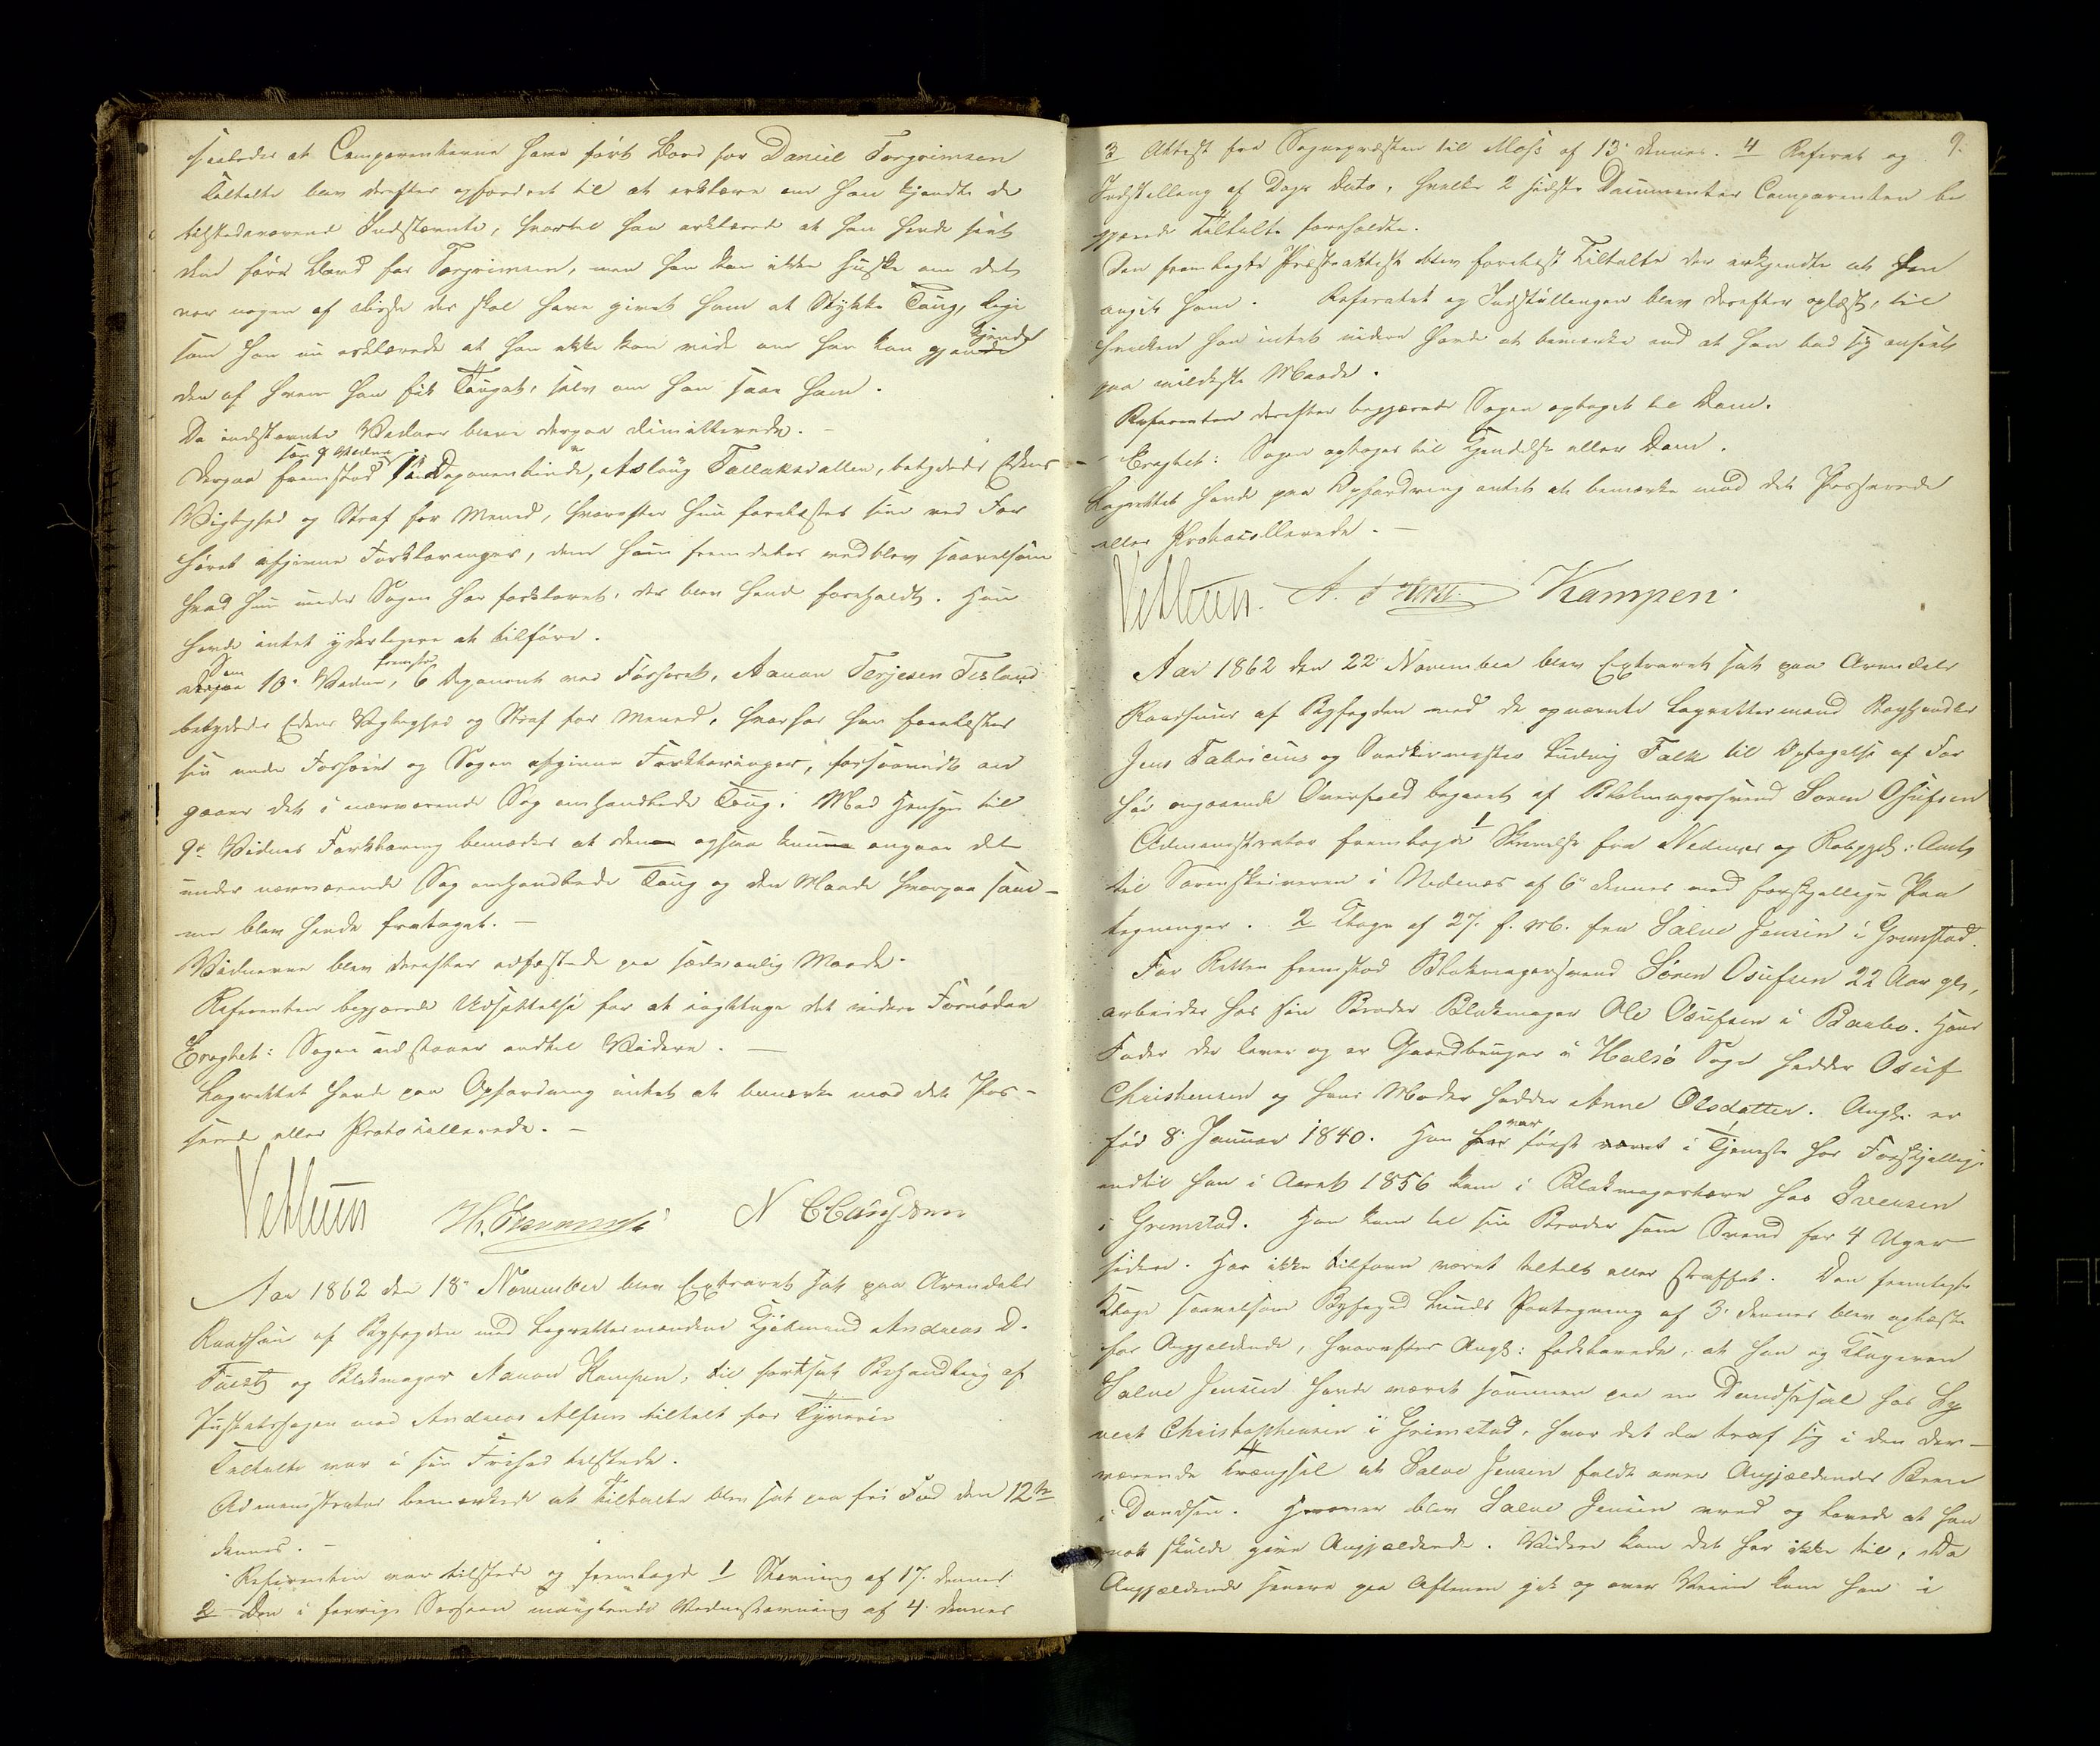 saaledes at Comparenterne have ført Baad for Daniel Torgrimsen
Tiltalte blev derefter opfordret til at erklære om han kjendte de
tilstedeværende Indstævnte, hvortil han erklærede at han havde seet
dem føre Baad for Torgrimsen, men han kan ikke huske om det
var nogen af disse der skal have givet ham et Stykke Toug, lige
som han nu erklærede at han ikke kan vide om han kan gjende kjende
den af hvem han fik Touget, selv om han saae ham.
De indstævnte Vidner bleve derpaa dimitterede. –
Derpaa fremstod som 9 Vidne Deponentinde, Aslaug Tallaksdatter, betydedes Edens
Vigtighed og Straf for Meened, hvorefter hun forelæstes sine ved For
høret afgivne Forklaringer, dem hun fremdeles vedblev saavelsom
hvad hun under Sagen har forklaret, der blev hende foreholdt. Hun
havde intet yderligere at tilføre.
Som 10de Vidne, fremstod 6 Deponent ved Forhøret, Aanon Terjesen Fesland
betydedes Edens Vigtighed og Straf for Meened, hvorfor han forelæstes
sin under Forhøret og Sagen afgivne Forklaringer, forsaavidt an
gaaer det i nærværende Sag omhandlede Toug. Med Hensyn til
9de Vidnes Forklaring bemærkes at denne ogsaa kunne angaae det
under nærværende Sag omhandlede Toug og den Maade hvorpaa sam–
me blev hende frataget. –
Vidnerne blev derefter edfæstede paa sædvanlig Maade.
Referenten begjærede Udsættelse for at iagttage det videre Fornødne
Eragtet: Sagen udstaaer indtil Videre. –
Lagrettet havde paa Opfordring intet at bemærke mod det Pas–
serede eller Protokollerede. –
Aar 1862 den 18de November blev Extraret sat paa Arendals
Raadhuus af Byfogden med Lagrettesmændene Kjøbmand Andreas D.
Furst og Blokmager Aanon Kampen, til fortsat Behandling af
Justitssagen mod Andreas Alfsen tiltalt for Tyverie
Tiltalte var i sin Frihed tilstede.
Administrator bemærkede at Tiltalte blev sat paa fri Fod den 12te
dennes. –
Referenten var tilstede og fremlagde 1 Stævning af 17de dennes
2 Den i forrige Session manglende Vidnestævning af 4. dennes
9.
3 Attest fra Sognepræsten til Moss af 13de dennes. 4 Referat og
Indstilling af Dags Dato, hvilke 2 sidste Documenter Comparenten be
gjærede Tiltalte foreholdte.
Den fremlagte Præsteattest blev forelæst Tiltalte der erkjendte at den
angik ham. Referatet og Indstillingen blev derefter oplæst, til
hvilken han intet videre havde at bemærke end at han bad sig anseet
paa mildeste Maade.
Referenten derefter begjærede Sagen optaget til Dom.
Eragtet: Sagen optages til Kjendelse eller Dom.
Lagrettet havde paa Opfordring intet at bemærke mod det Passerede
eller Protocollerede. –
Kampen.
Aar 1862 den 22de November blev Extraret sat paa Arendals
Raadhuus af Byfogden med de opnævnte Lagrettesmænd Boghandler
Jens Fabricius og Snedkermester Ludvig Falk til Optagelse af For
hør angaaende Overfald begaaet af Blokmagersvend Søren Osufsen
Administrator fremlagde 1 Skrivelse fra Nedenæs og Robygd: Amt
til Sorenskriveren i Nedenæs af 6te dennes med forskjellige Paa
tegninger. 2 Klage af 27. f. M. fra Salve Jensen i Grimstad.
For Retten fremstod Blokmagersvend Søren Osufsen 22 Aar gl,
arbeider hos sin Broder Blokmager Ole Osufsen i Barbo. Hans
Fader der lever og er Gaardbruger i Halsø Sogn hedder Osuf
Christensen og hans Moder hedder Anne Olsdatter. Angl. er
fød 8de Januar 1840. Han har var først været i Tjeneste hos Forskjellige
indtil han i Aaret 1856 kom i Blokmagerlære hos Svensen
i Grimstad. Han kom til sin Broder som Svend for 4 Uger
siden. Har ikke tilforn været tiltalt eller straffet. Den fremlagte
Klage saavelsom Byfoged Lunds Paategning af 3de dennes blev oplæst
for Angjældende, hvorefter Angl: forklarede, at han og Klageren
Salve Jensen havde været sammen paa en Dandsesal hos Sy
vert Christophersen i Grimstad, hvor det da traf sig i den der–
værende Trængsel at Salve Jensen faldt over Angjældendes Been
i Dandsen. Herover blev Salve Jensen vred og lovede at han
nok skulde give Angjældende. Videre kom det her ikke til, Da
Angjældende senere paa Aftenen gik op over Veien kom han i